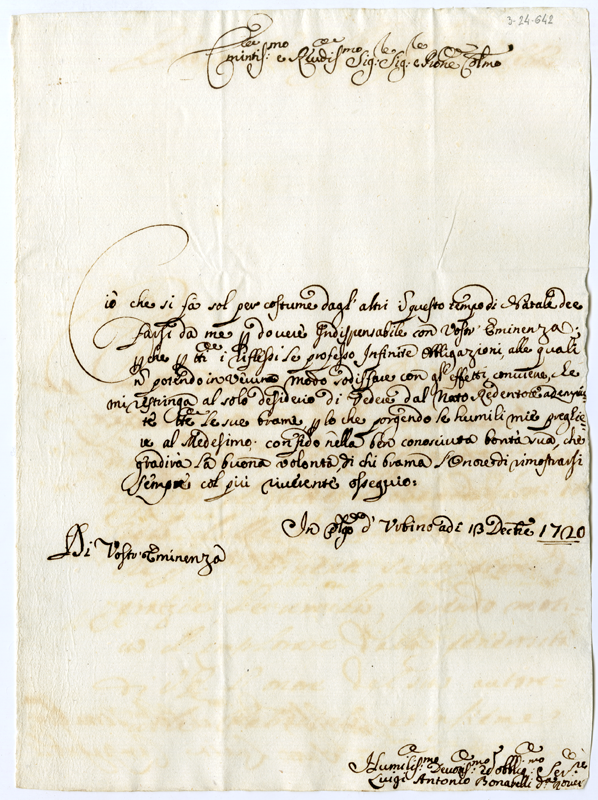 3-24-642
Emintis:mo e Rudis:mo Sig:re Sig:re e Prone Colmo
Ciò che si fà sol per costume dagl' altri in questo tempo di Natale dee
farsi da me p douere Indispensabile con Vostr' Eminenza,
p che p tti i riflessi le professo Infinite obligazioni, alle quali
n potendo in veruno modo sodisfare con gl' effetti conviene, che
mi restringa al solo desiderio di vedere dal Nato Redentore adempiu=
te tte le sue brame, p lo che porgendo le humili mie preghie=
re al Medesimo confido nella ben conosciuta bontà sua, che
gradirà la buona volontà di chi brama l'onore di rimostrarsi
sempre col più riuerente ossequio:
In d' Vrbino adi 13 Decbre 1720
Di Vostr' Eminenza
Humiliss:mo Deuotiss:mo ed obblig:mo Ser:re
Luigi Antonio Bonabelli